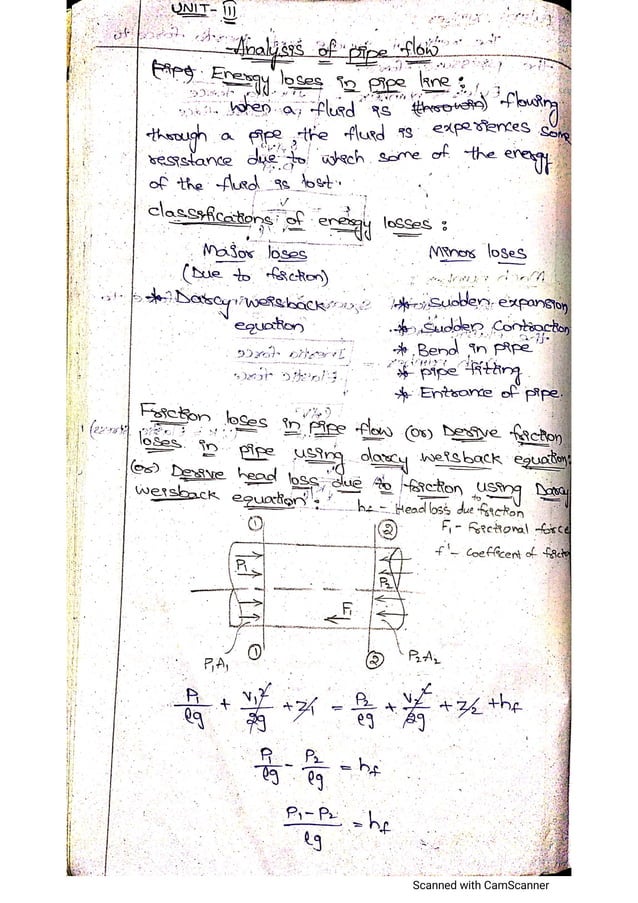 UNIT - III
Analysis of pipe flow
Energy loses in pipe line :
when a fluid is flowing
through a pipe, the fluid is experiences some
resistance due to which some of the energy
of the fluid is lost.
classifications of energy losses :
Major loses Minor loses
(Due to friction)
* Darcy weisback * Sudden expansion
equation * Sudden Contraction
* Bend in pipe
* pipe fitting
* Entrance of pipe.
Friction loses in pipe flow (or) Derive friction
loses in pipe using darcy weisback equation.
(or) Derive head loss due to friction using Darcy
weisback equation :
hf - Head loss due friction
F1 - frictional force
f' - coefficent of
① ②
P1 P2
F1
① ②
P1A1 P2A2
P1/ρg + V1²/2g + Z1 = P2/ρg + V2²/2g + Z2 + hf
P1/ρg - P2/ρg = hf
P1-P2/ρg = hf
Scanned with CamScanner